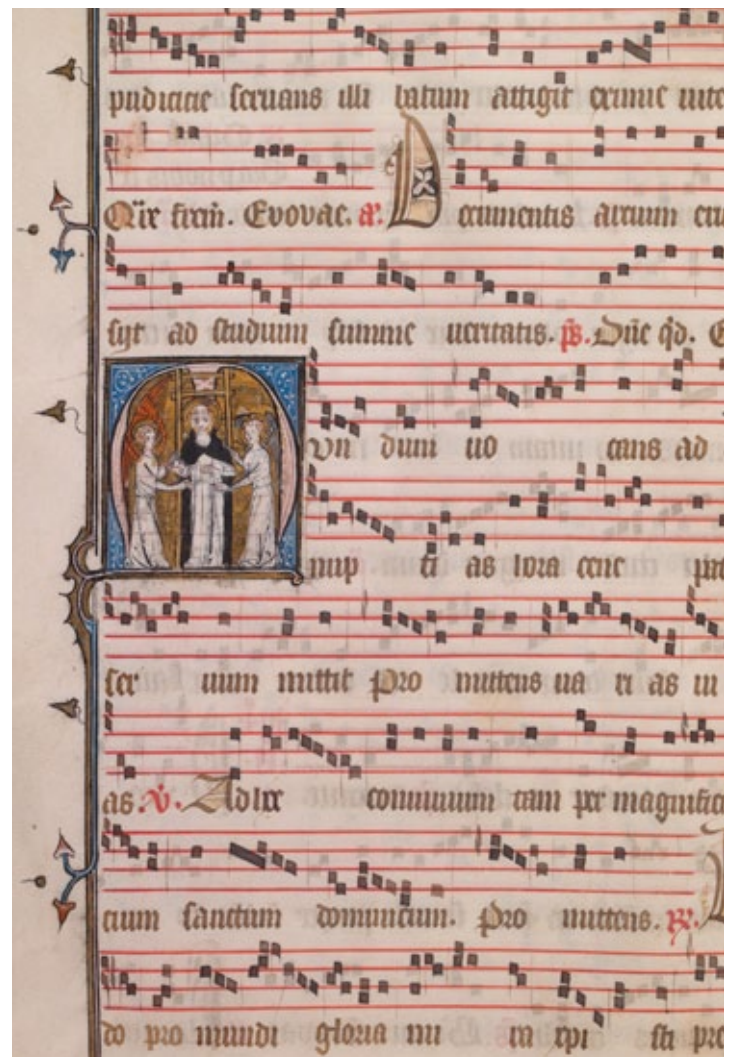 pudicicie seruans illi batum attigit eximie uite
Evovae. a. D ocumentis arcium eru
syt ad studium summe ueritatis. ps. Dñe qd.
M vn dum uo cans ad
nup ti as hora cene
ser uum mittit pro mittens ua ri as
as. V. Ad hoc conuiuium tam per magnific
cium sanctum dominicum. pro mittens. R.
do pro mundi gloria mi ra xpi sti pre